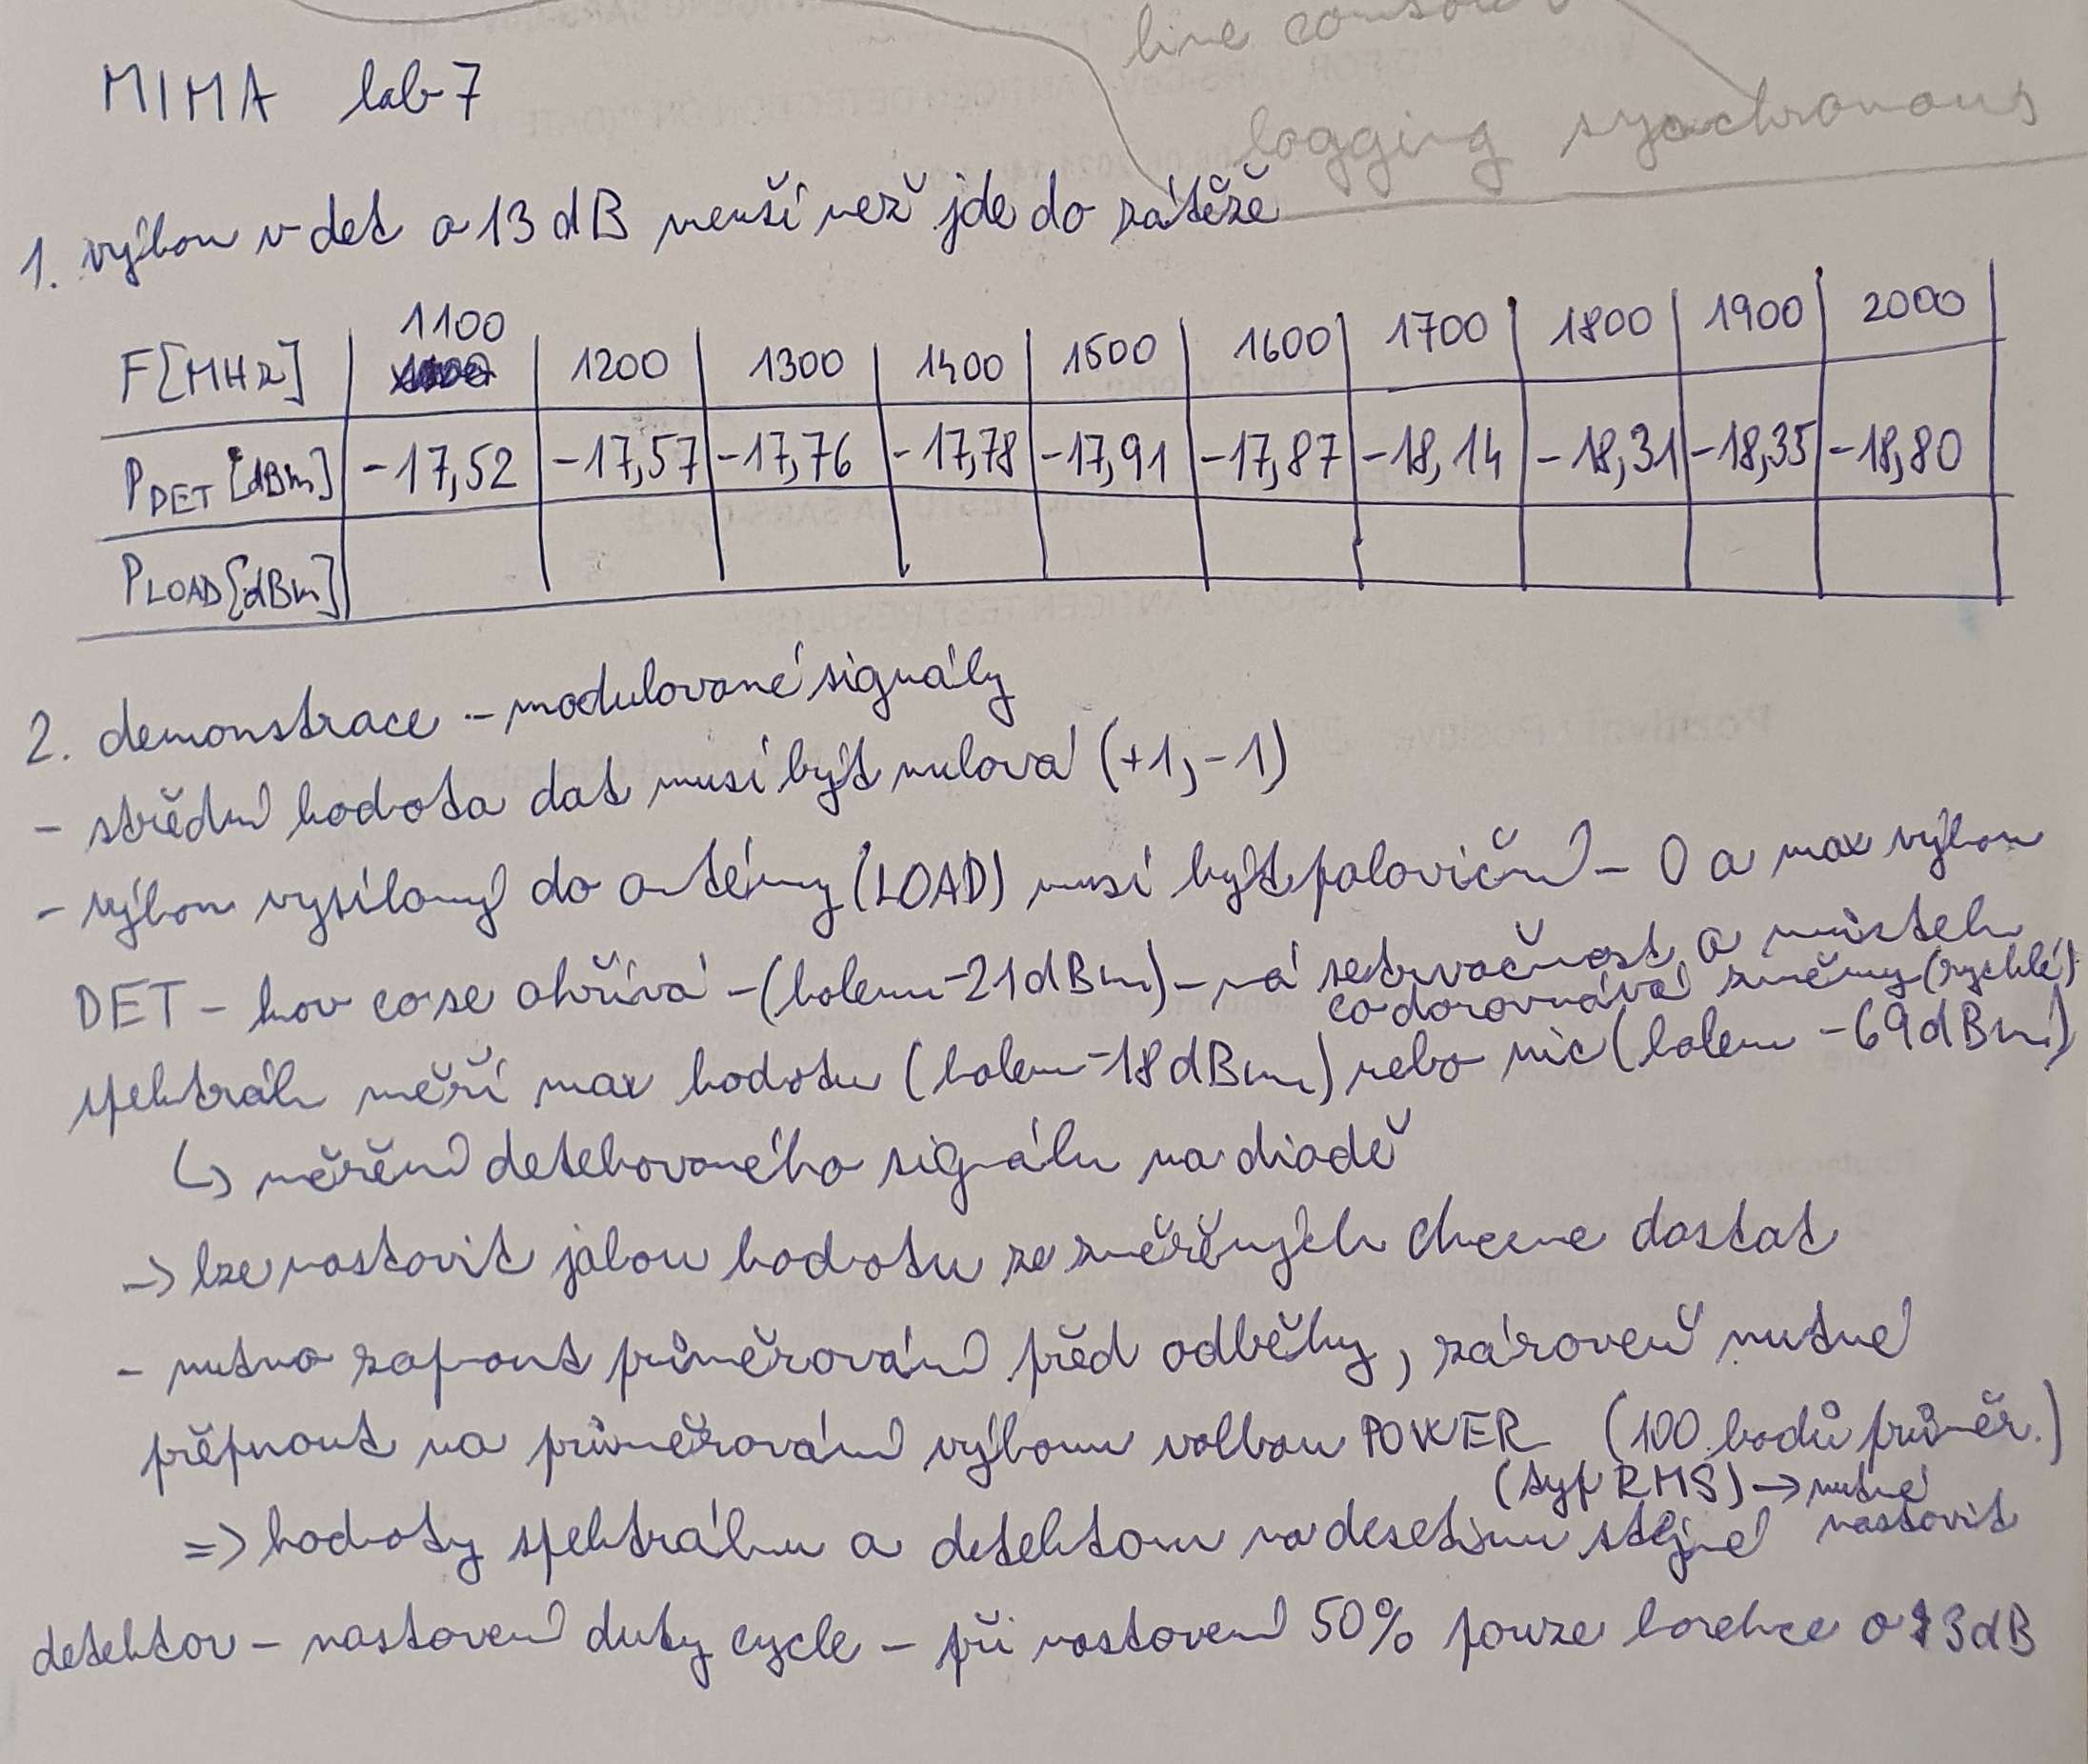 line console
logging synchronous
MIMA lab 7
1. výkon v det o 13 dB menší než jde do zátěže
F[MHz] 1100 1200 1300 1400 1500 1600 1700 1800 1900 2000
PDET [dBm] -17,52 -17,57 -17,76 -17,78 -17,91 -17,87 -18,14 -18,31 -18,35 -18,80
PLOAD [dBm]
2. demonstrace - modulované signály
- střední hodnota dat musí být nulová (+1, -1)
- výkon vysílaný do antény (LOAD) musí být poloviční - 0 a max výkon
DET - kov co se ohřívá - (kolem -21dBm) - má setrvačnost a
co dorovnává změny (rychlé)
spektrák měří max hodotu (kolem -18dBm) nebo nic (kolem -69dBm)
↳ měření detekovaného signálu na diodě
-> lze nastavit jakou hodnotu ze změřených chceme dostat
- nutno zapnout průměrování před odběhy, zároveň nutné
přepnout na průměrování výkonu volbou POWER (100 bodů průměr.)
(typ RMS) -> nutné nastavit
=> hodnoty spektráku a detektoru na desetinu stejné
detektor - nastavení duty cycle - při nastavení 50% pouze korekce o 3dB